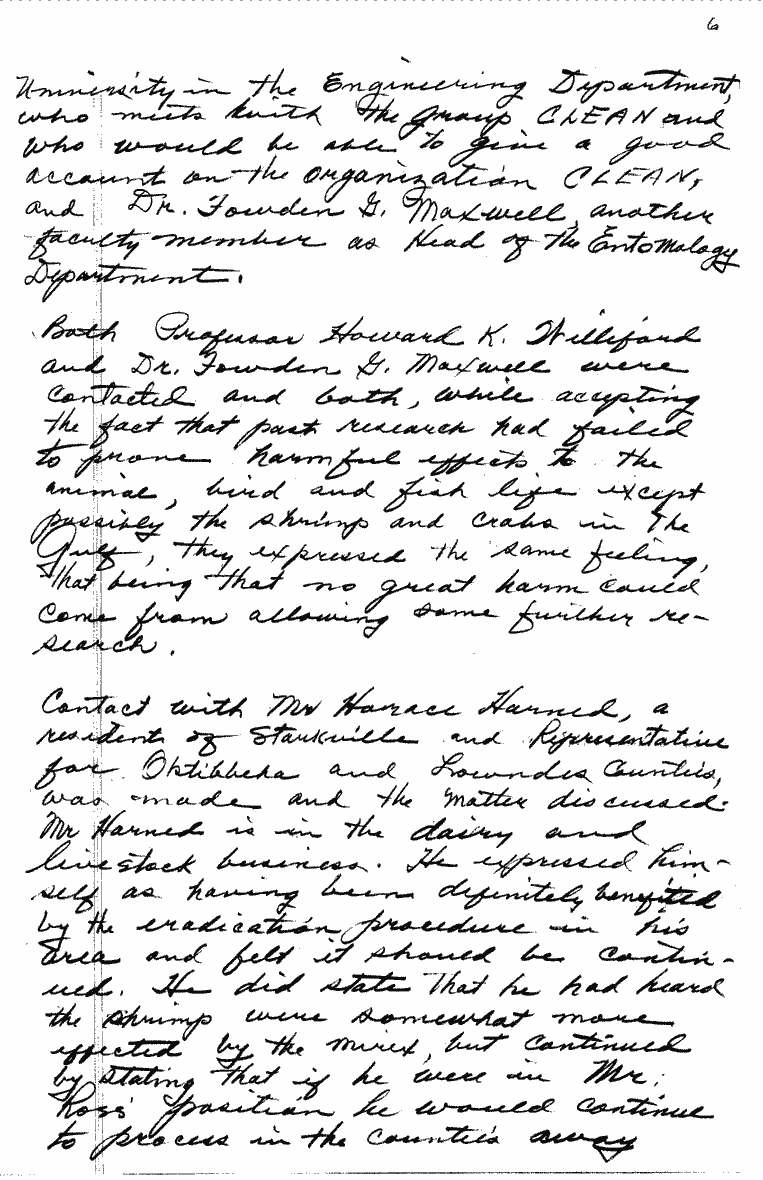 6
University in the Engineering Department,
who meets with the group CLEAN and
who would be able to give a good
account on the organization CLEAN,
and Dr. Fowden G. Maxwell, another
faculty member as Head of the Entomology
Department.
Both Professor Howard K. Williford
and Dr. Fowden G. Maxwell were
contacted and both, while accepting
the fact that past research had failed
to prove harmful effects to the
animal, bird and fish life except
possibly the shrimp and crabs in the
Gulf, they expressed the same feeling,
that being that no great harm could
come from allowing some further re-
search.
Contact with Mr Horace Harned, a
resident of Starkville and Representative
for Oktibbeha and Lowndes Counties,
was made and the matter discussed.
Mr Harned is in the dairy and
livestock business. He expressed him-
self as having been definitely benefited
by the eradication procedure in his
area and felt it should be contin-
ued. He did state that he had heard
the shrimp were somewhat more
effected by the mirex, but continued
by stating that if he were in Mr.
Ross' position he would continue
to process in the counties away